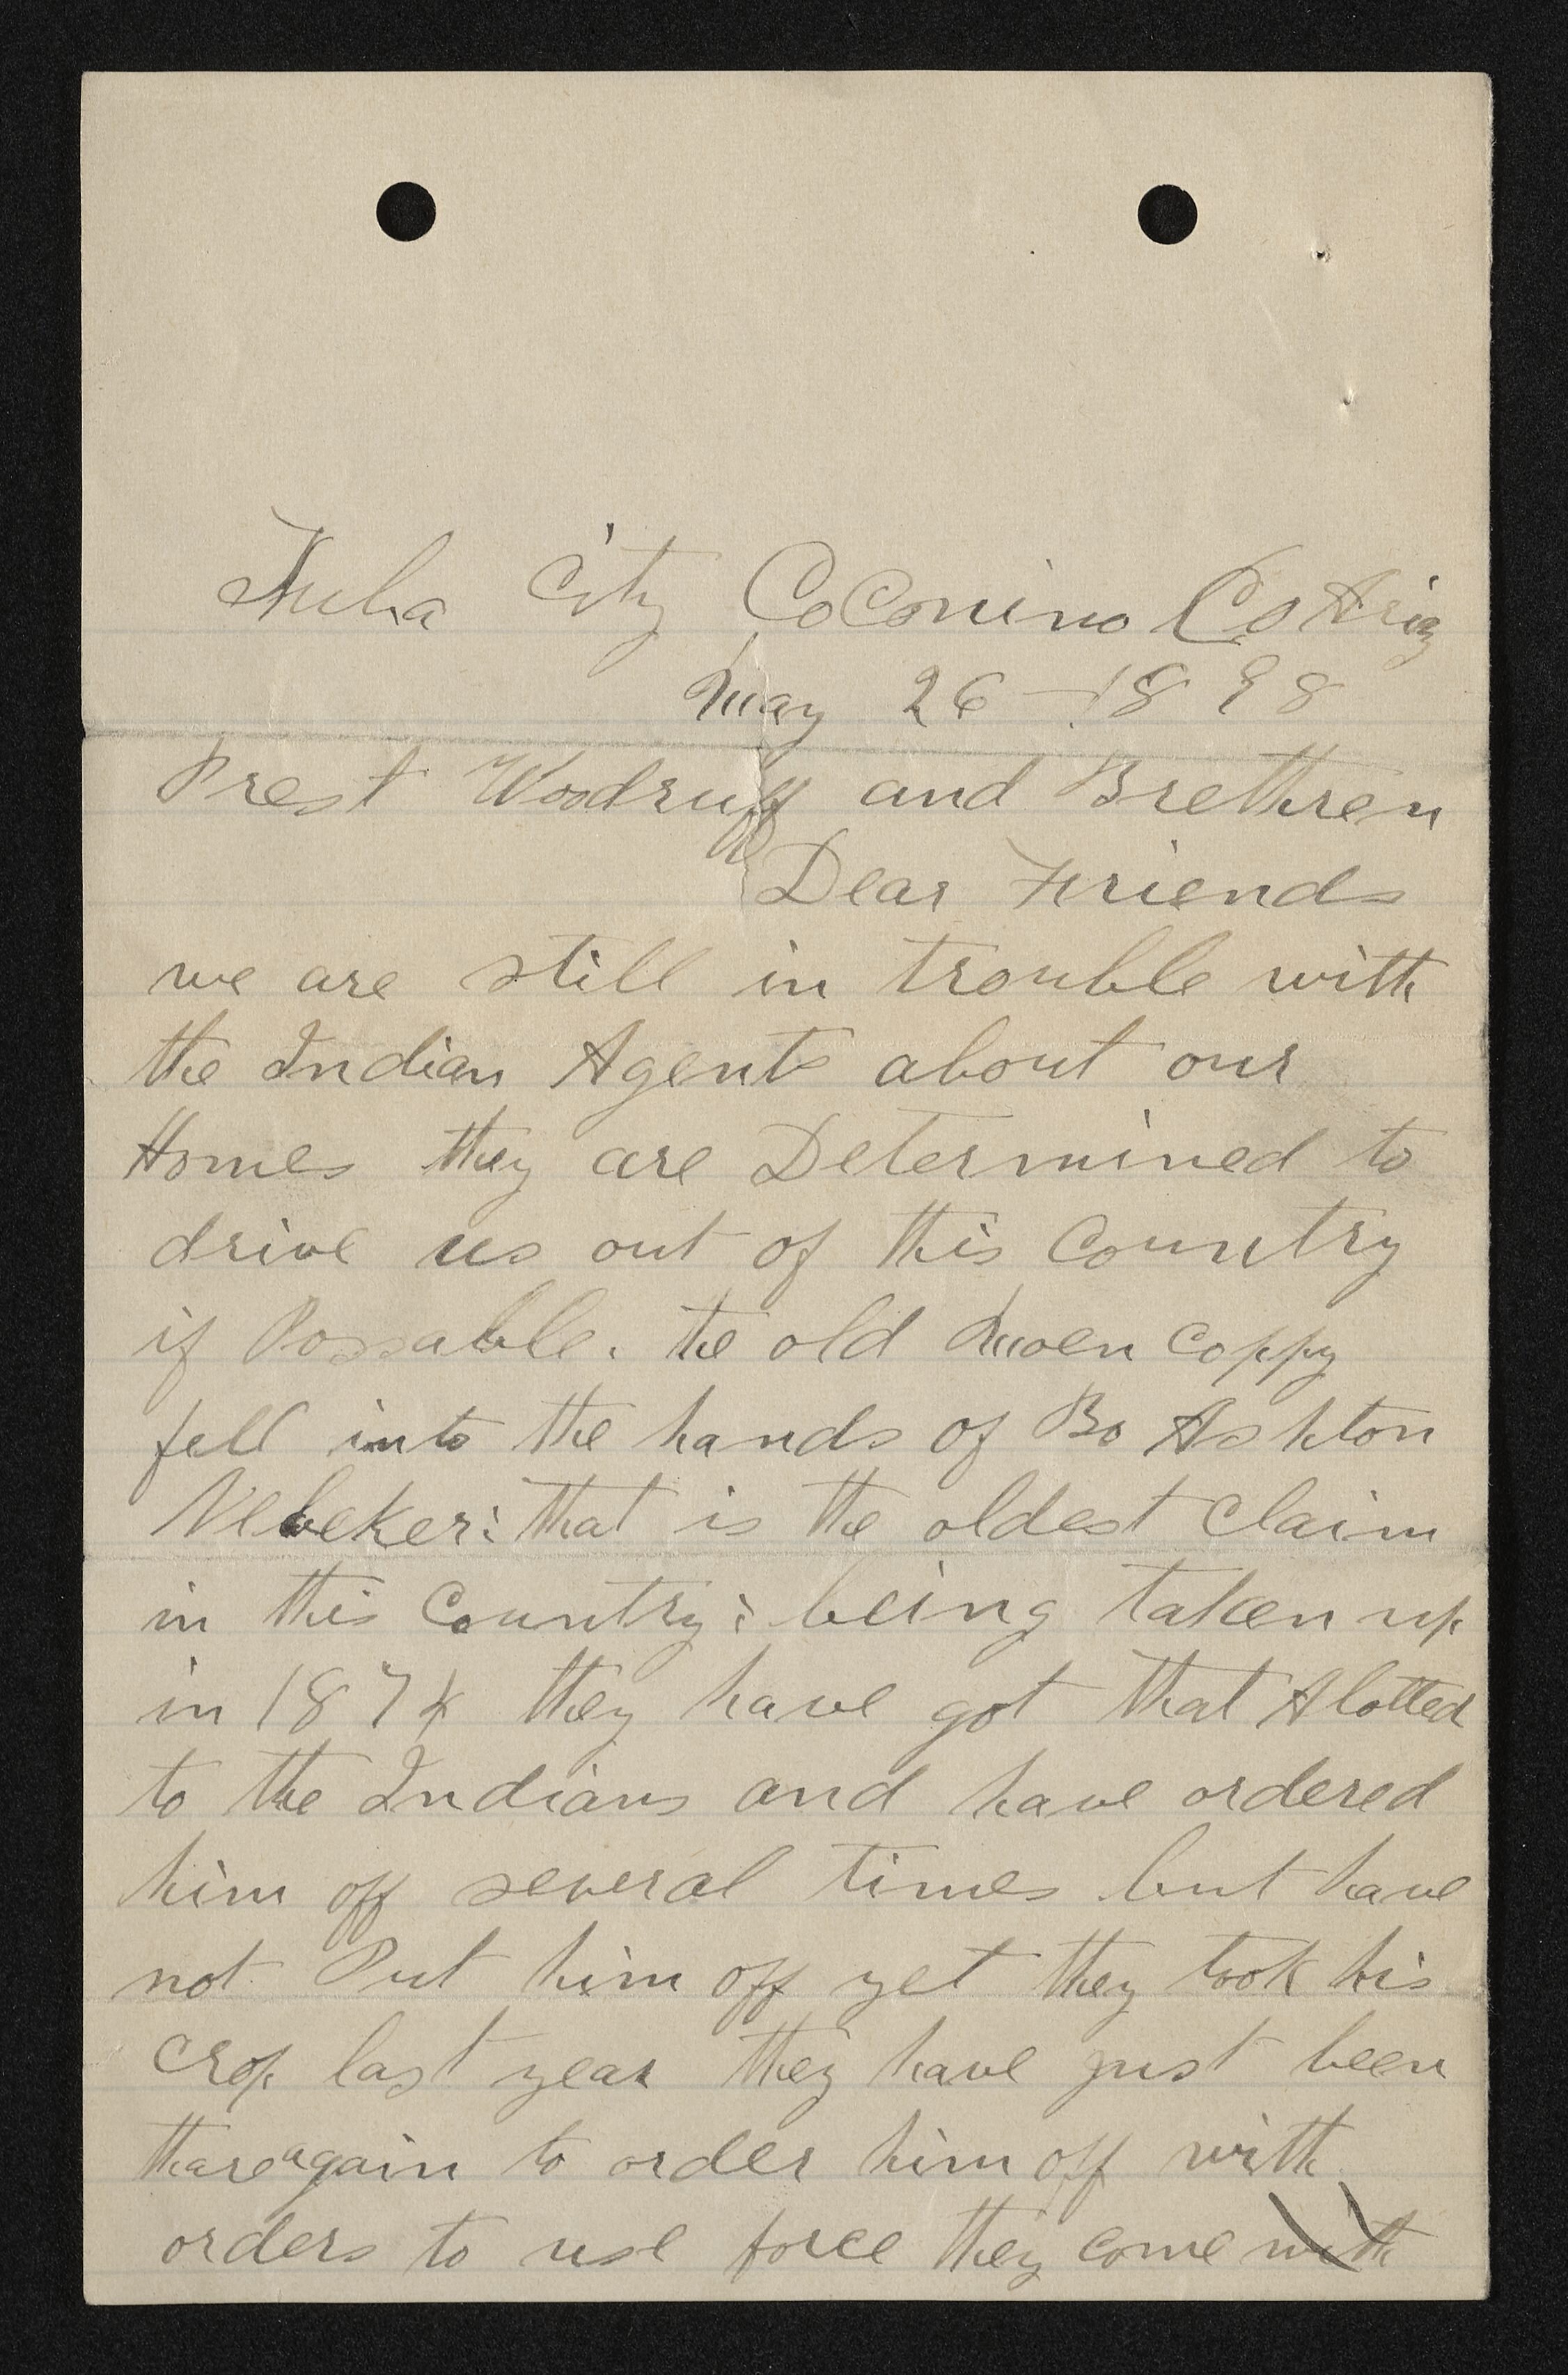 Tuba City CoConino Co Ariz
May 26 - 1898
Prest Woodruff and Brethren
Dear Friends
we are still in trouble with
the Indian Agents about our
Homes they are Determined to
drive us out of this Country
if Possable. the old Moen Coppy
fell into the hands of Bo Ashton
Nebeker: that is the oldest Claim
in this Country: being taken up
in 1874 they have got that Alotted
to the Indians and have ordered
him off several times but have
not Put him off yet they took his
Crop last year they have just been
thare again to order him off with
orders to use force they come with